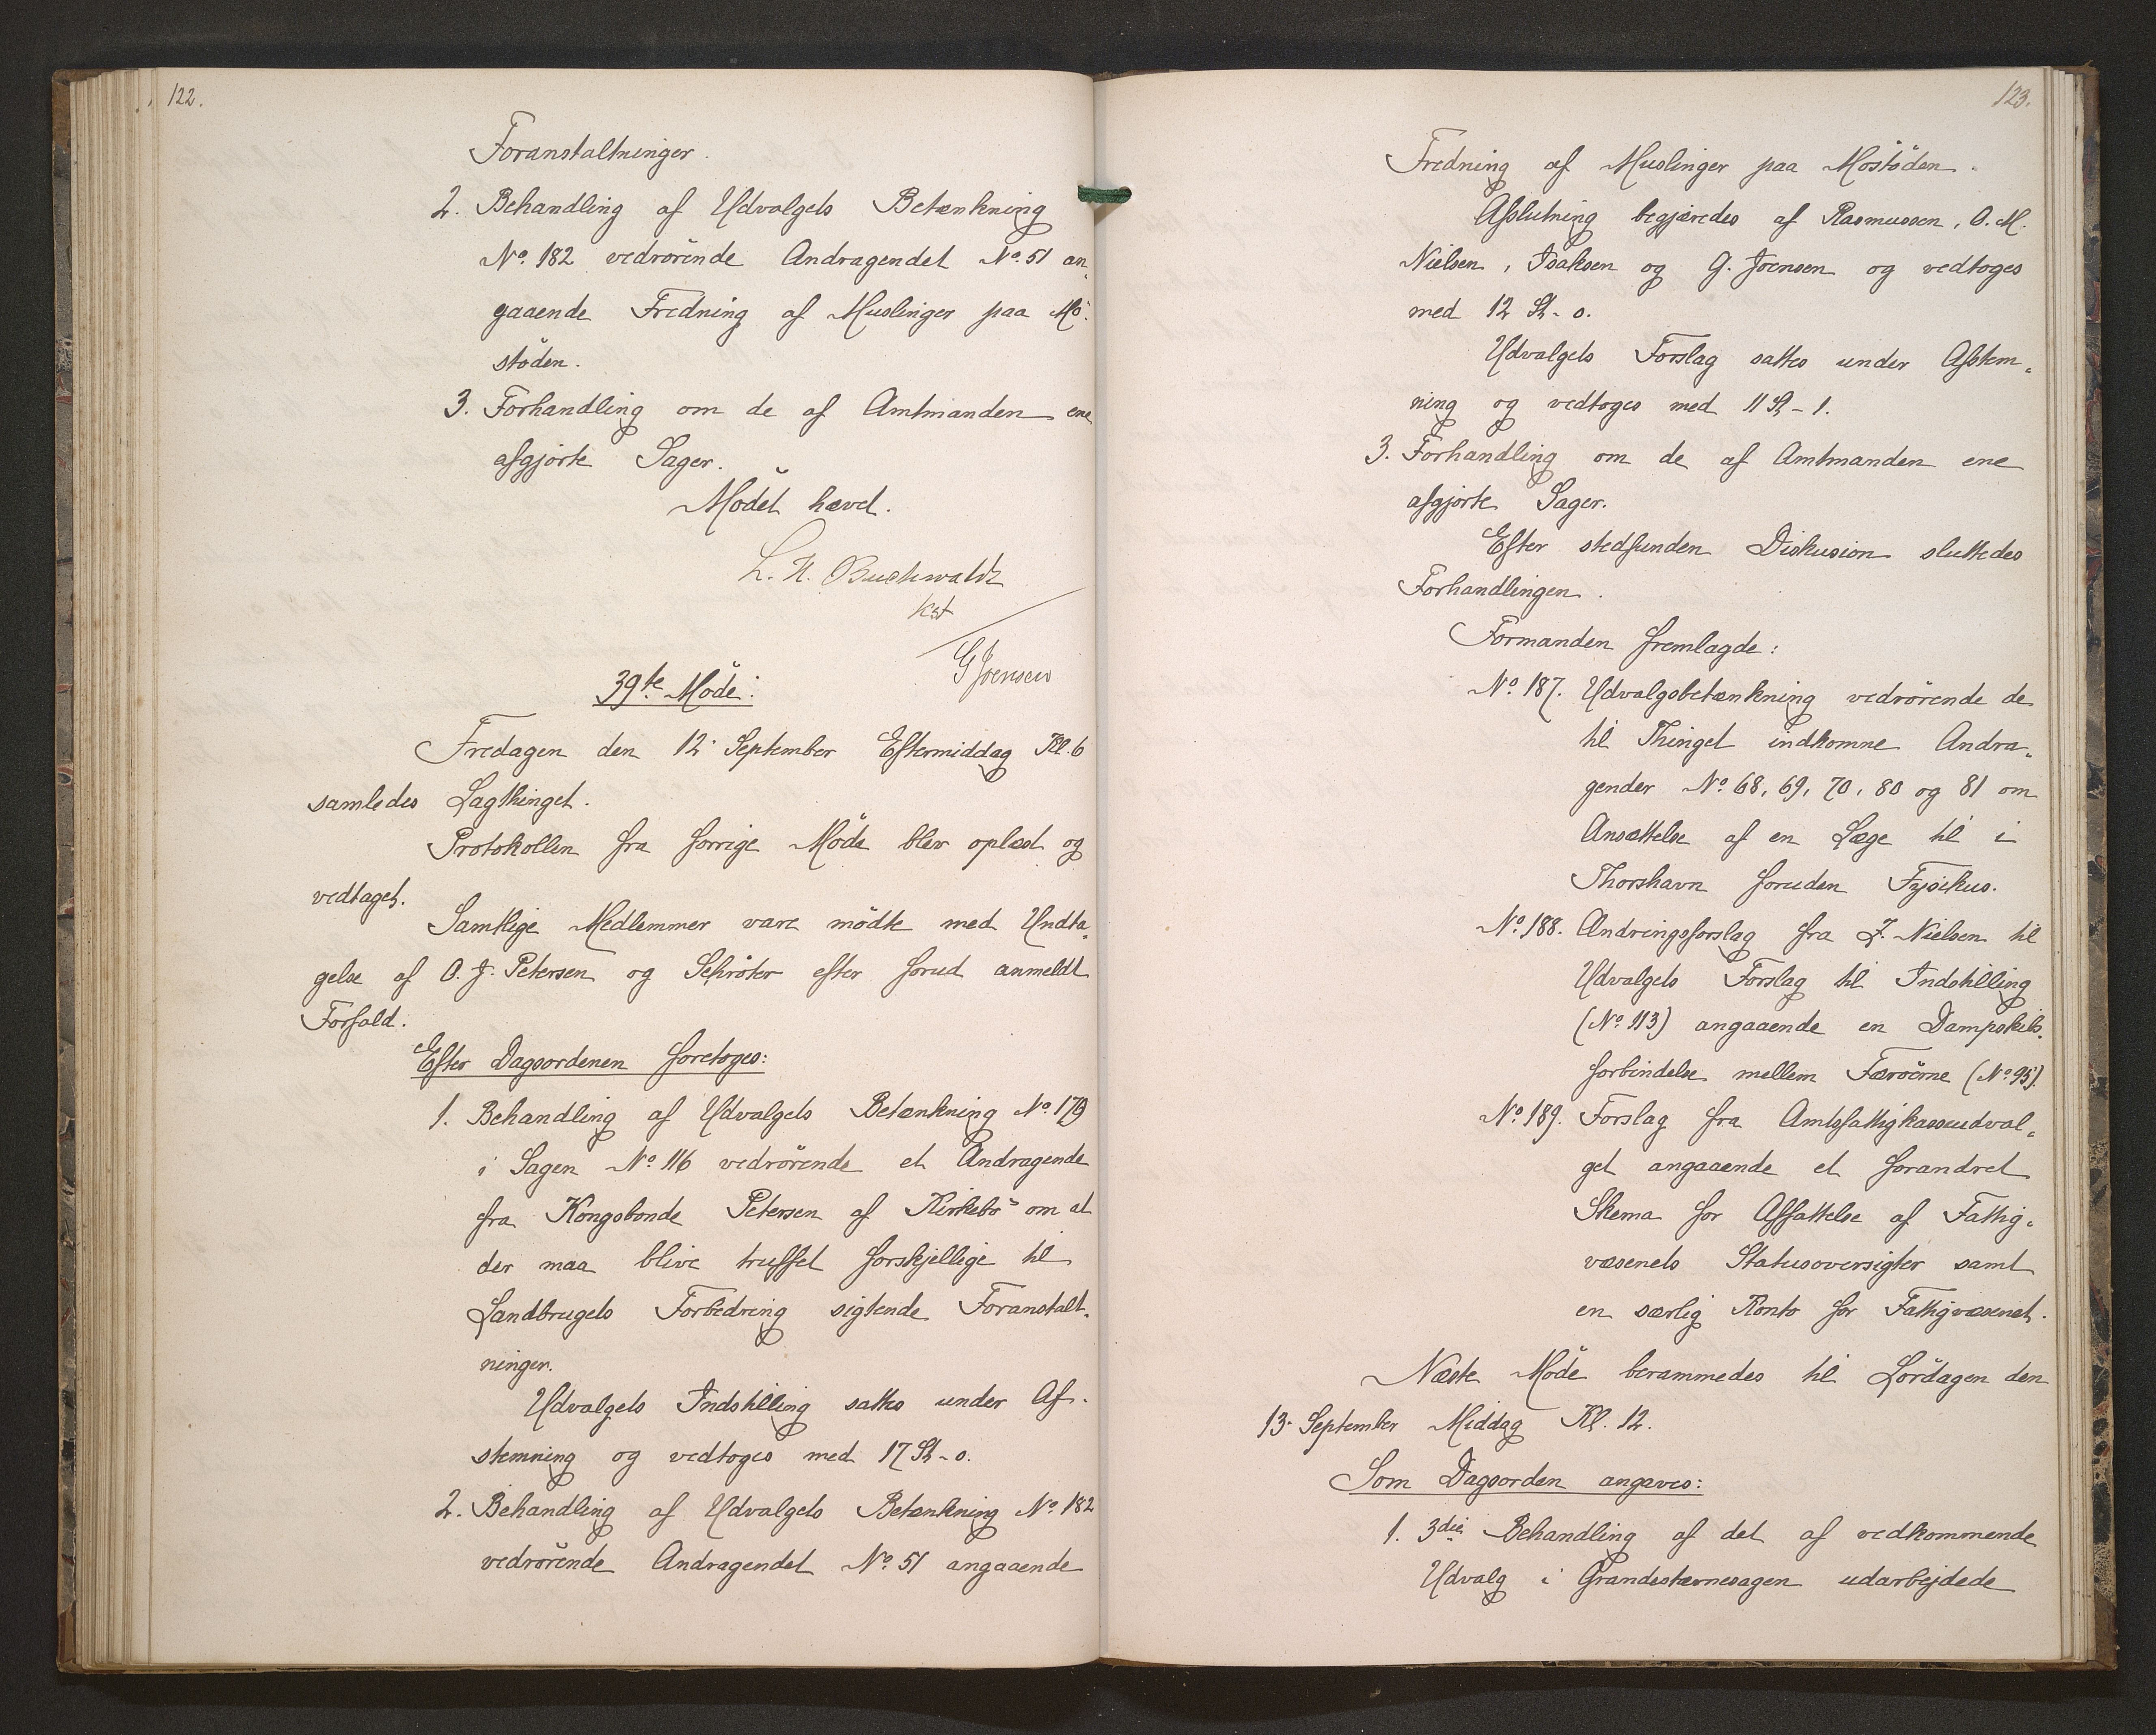 122.
Foranstaltninger.
2. Behandling af Udvalgets Betænkning
No. 182 vedrörende Andragendet No. 51 an-
gaaende Fredning af Muslinger paa Mö-
stöden.
3. Forhandling om de af Amtmanden ene
afgjorte Sager.
Mödet hævet.
L. N. Buchwaldt
kst
G Joensen
39te Möde.
Fredagen den 12. September Eftermiddag Kl. 6
samledes Lagthinget.
Protokollen fra forrige Möde blev oplæst og
vedtaget.
Samtlige Medlemmer vare mödte med Undta-
gelse af O. J. Petersen og Schröter efter forud anmeldt
Forfald.
Efter Dagsordenen foretoges:
1. Behandling af Udvalgets Betænkning No. 179
i Sagen No. 116 vedrörende et Andragende
fra Kongsbonde Petersen af Kirkebö om at
der maa blive truffet forskjellige til
Landbrugets Forbedring sigtende Foranstalt-
ninger.
Udvalgets Indstilling sattes under Af-
stemning og vedtoges med 17 St - 0.
2. Behandling af Udvalgets Betænkning No. 182
vedrörende Andragendet No. 51 angaaende
123.
Fredning af Muslinger paa Möstöden.
Afslutning begjæredes af Rasmussen, O. M.
Nielsen, Isaksen og G. Joensen og vedtoges
med 12 St - 0.
Udvalgets Forslag sattes under Afstem-
ning og vedtoges med 11 St - 1.
3. Forhandling om de af Amtmanden ene
afgjorte Sager.
Efter stedfunden Diskusion sluttedes
Forhandlingen.
Formanden fremlagde:
No. 187. Udvalgsbetænkning vedrörende de
til Thinget indkomne Andra-
gender No. 68, 69, 70, 80 og 81 om
Ansættelse af en Læge til i
Thorshavn foruden Fysikus.
No. 188. Ændringsforslag fra Z. Nielsen til
Udvalgets Forslag til Indstilling
(No. 113) angaaende en Dampskibs-
forbindelse mellem Færöerne (No. 95).
No. 189. Forslag fra Amtsfattigkasseudval-
get angaaende et forandret
Skema for Affattelse af Fattig-
væsenets Statusoversigter samt
en særlig Konto for Fattigvæsenet.
Næste Möde berammedes til Lördagen den
13. September Middag Kl. 12.
Som Dagsorden angaves:
1. 3die Behandling af det af vedkommende
Udvalg i Grandestævnesagen udarbejdede